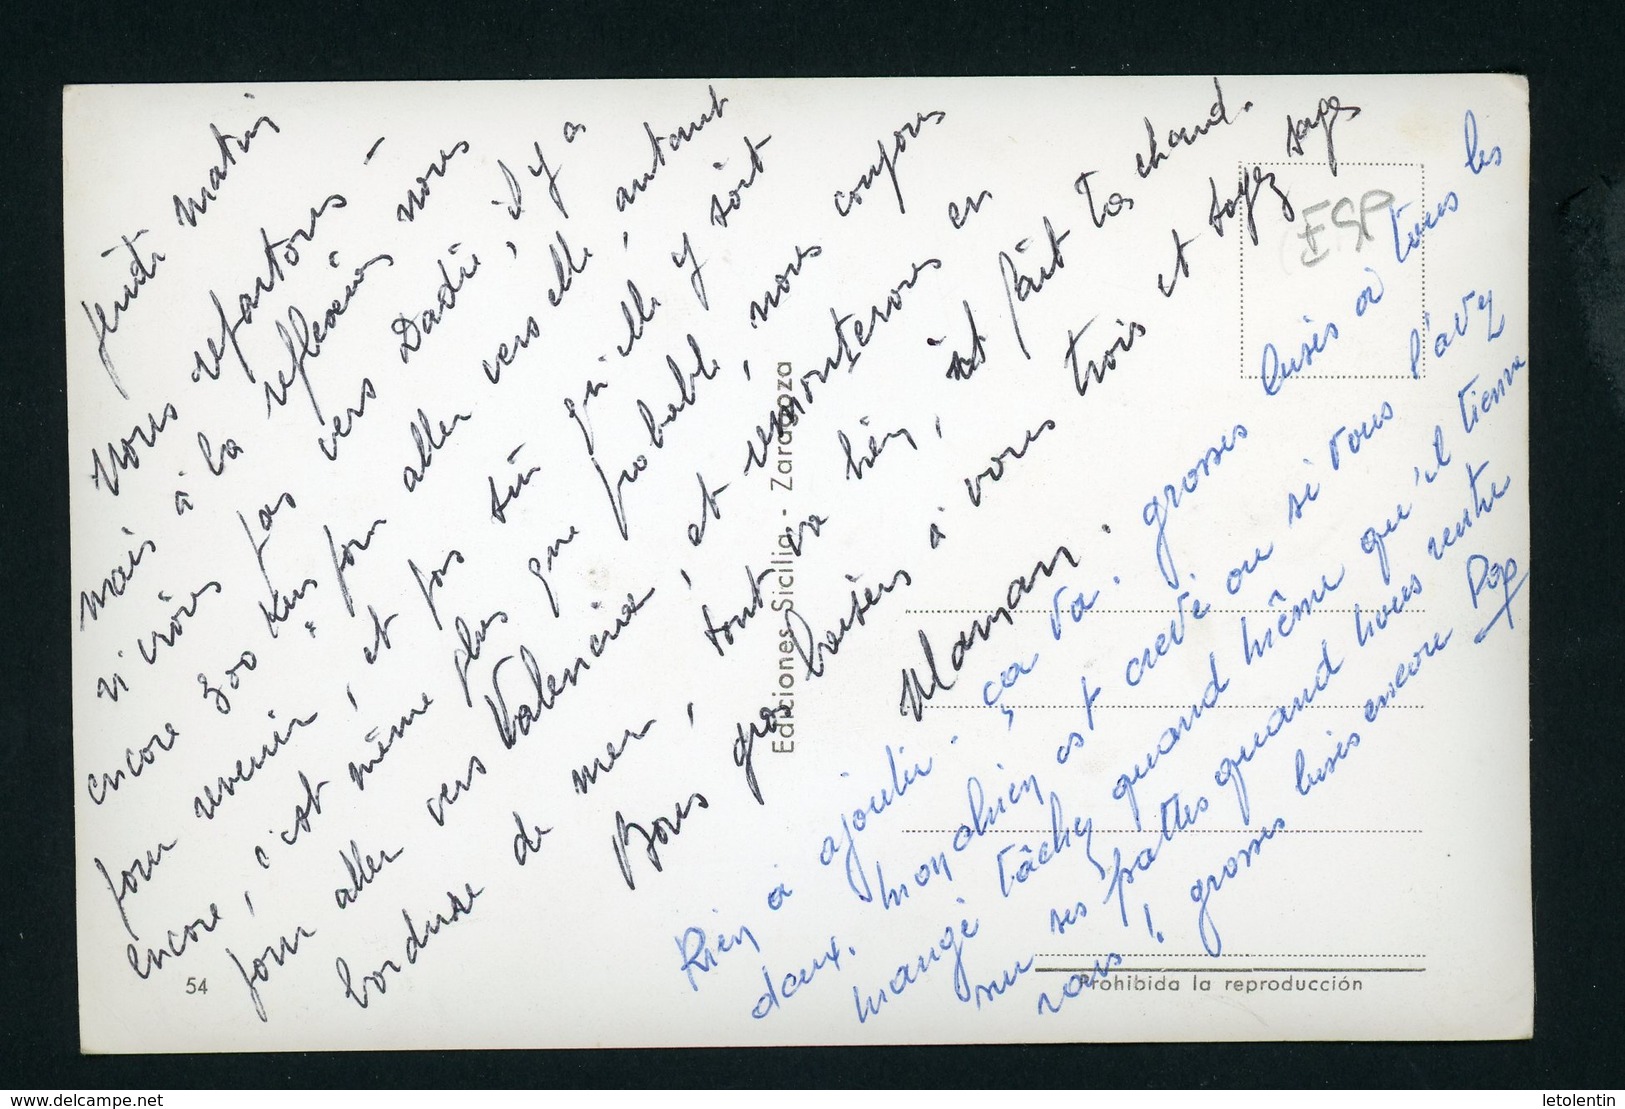 jeudi matin
Nous repartons -
mais à la reflexion nous
n'irons pas vers Madrid, il y a
encore 300 Kms pour aller vers elle, autant
pour revenir, et pas sûr qu'elle y soit
encore, c'est même plus que probable, nous coupons
pour aller vers Valencine, et remonterons en
bordure de mer, tout va bien, et fait tas chaud.
Bons gros baisers à vous trois et soyez sages
Maman.
Rien à ajouter. ça va. grosses buses à tous les
deux. mon chien est crevé ou si vous l'avez
mangé tâchez quand même qu'il tienne
sur ses pattes quand nous rentre
rons! grosses buses encore Pop
ESP
Ediciones Sicilia - Zaragoza
54
Prohibida la reproducción
delcampe.net
letolentin